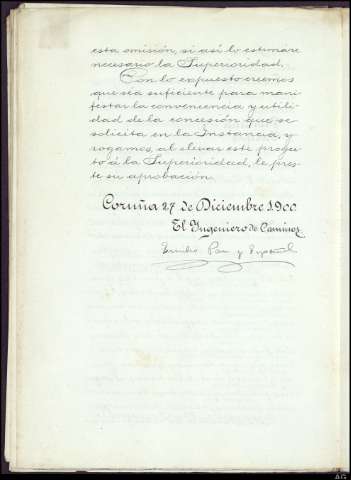 esta omisión, si así lo estimare
necesario la Superioridad.
Con lo expuesto creemos
que sea suficiente para mani-
festar la conveniencia y utili-
dad de la concesión que se
solicita en la Instancia, y
rogamos, al elevar este proyec-
to á la Superioridad, le pres-
te su aprobación.
Coruña 27 de Diciembre 1900
El Ingeniero de Caminos,
Emilio Pan y Español